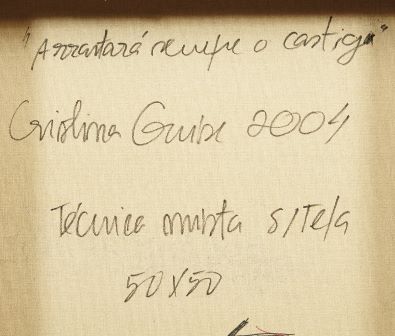 "Arrastará sempre o castigo"
Cristina Guise 2004
Técnica mista s/Tela
50x50